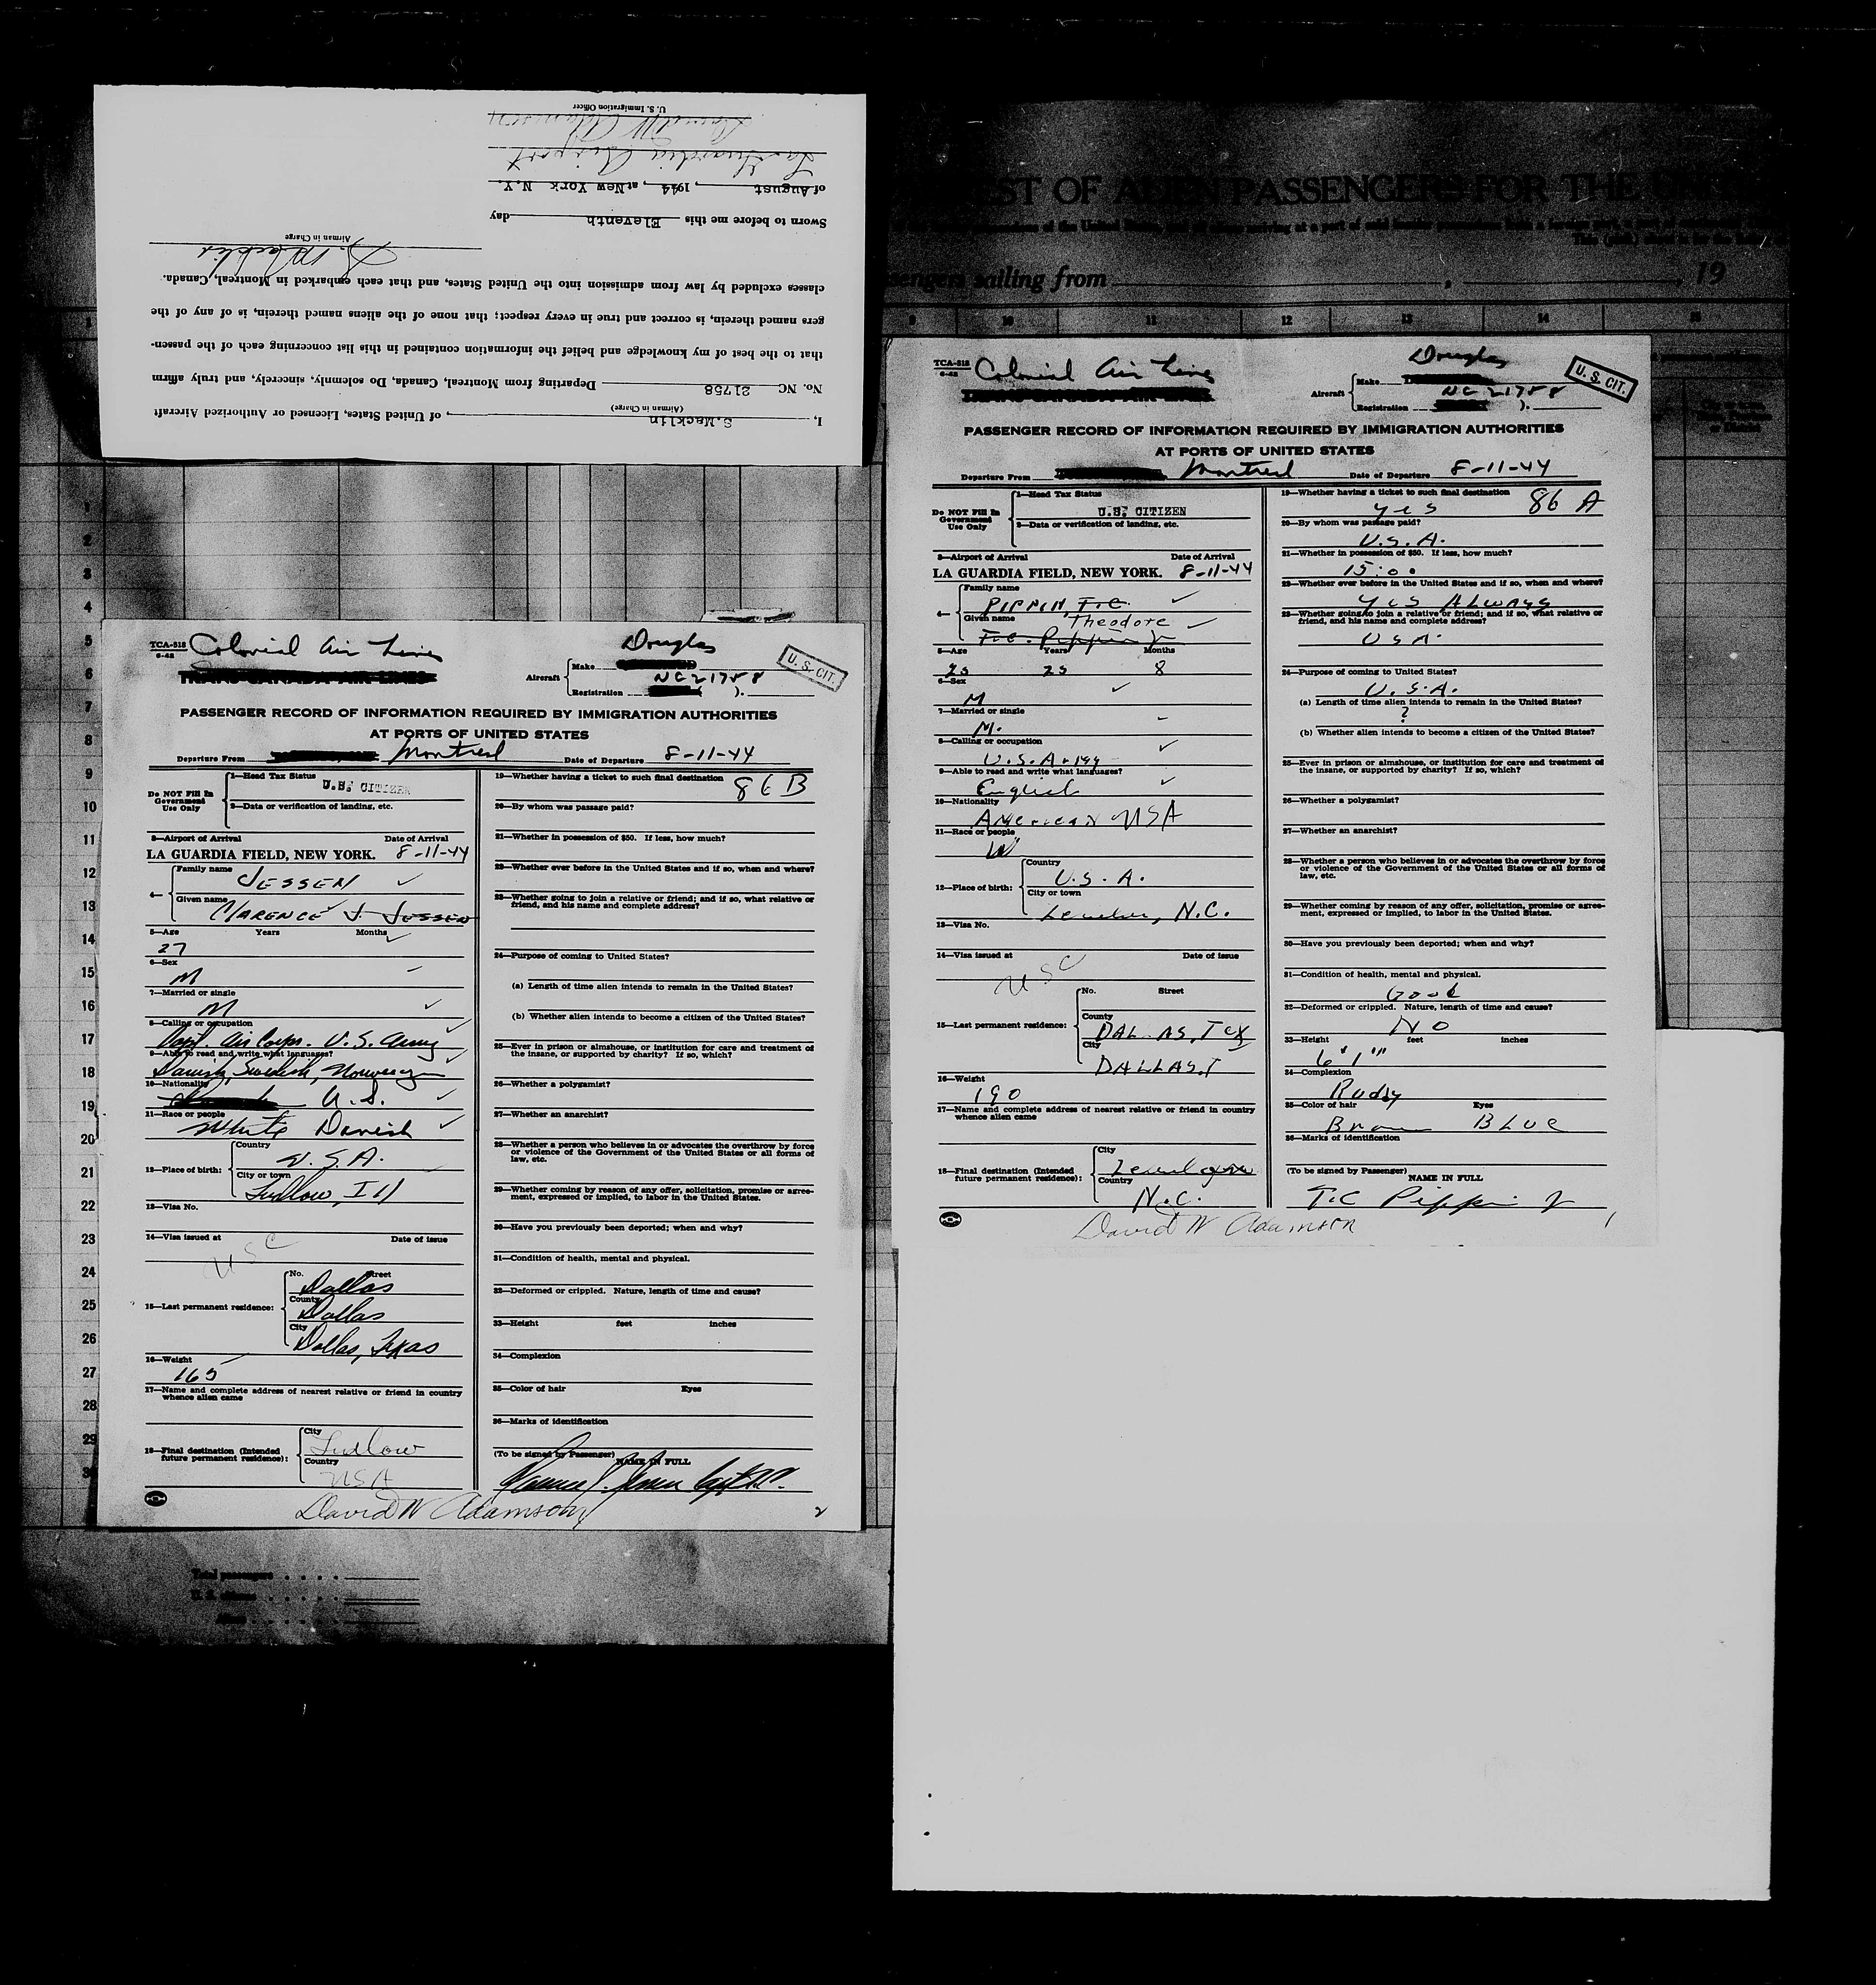 I, S.Macklin, of United States, Licensed or Authorized Aircraft
(Airman in Charge)
No. NC 21758 Departing from Montreal, Canada, Do solemnly, sincerely, and truly affirm
that to the best of my knowledge and belief the information contained in this list concerning each of the passen-
gers named therein, is correct and true in every respect; that none of the aliens named therein, is of any of the
classes excluded by law from admission into the United States, and that each embarked in Montreal, Canada.
S. Macklin
Airman in Charge
Sworn to before me this Eleventh day
of August, 1944, at New York N.Y.
La Guardia Airport
David W Adamson
U. S. Immigration Officer
1
2
3
4
5
6
7
8
9
10
11
12
13
14
15
16
17
18
19
20
21
22
23
24
25
26
27
28
29
30
TCA-518
6-42
Colonial Air Lines
TRANS-CANADA AIR LINES
Douglas
Aircraft
Make
NC 21758
Registration ( ).
U. S. CIT.
PASSENGER RECORD OF INFORMATION REQUIRED BY IMMIGRATION AUTHORITIES
AT PORTS OF UNITED STATES
Departure From Montreal Date of Departure 8-11-44
Do NOT Fill In
Government
Use Only
1—Head Tax Status
U.S. CITIZEN
2—Data or verification of landing, etc.
3—Airport of Arrival Date of Arrival
LA GUARDIA FIELD, NEW YORK. 8-11-44
4—
Family name
JESSEN
Given name
CLARENCE J. JESSEN
5—Age Years Months
27
6—Sex
M
7—Married or single
M
8—Calling or occupation
Capt. Air Corps. U.S. Army
9—Able to read and write what languages?
Danish, Swedish, Norwegian
10—Nationality
U.S.
11—Race or people
White Danish
12—Place of birth:
Country
U.S.A.
City or town
Ludlow, Ill
13—Visa No.
14—Visa issued at Date of issue
USC
15—Last permanent residence:
No. Street
Dallas
County
Dallas
City
Dallas, Texas
16—Weight
165
17—Name and complete address of nearest relative or friend in country
whence alien came
18—Final destination (Intended
future permanent residence):
City
Ludlow
Country
USA
19—Whether having a ticket to such final destination
86 B
20—By whom was passage paid?
21—Whether in possession of $50. If less, how much?
22—Whether ever before in the United States and if so, when and where?
23—Whether going to join a relative or friend; and if so, what relative or
friend, and his name and complete address?
24—Purpose of coming to United States?
(a) Length of time alien intends to remain in the United States?
(b) Whether alien intends to become a citizen of the United States?
25—Ever in prison or almshouse, or institution for care and treatment of
the insane, or supported by charity? If so, which?
26—Whether a polygamist?
27—Whether an anarchist?
28—Whether a person who believes in or advocates the overthrow by force
or violence of the Government of the United States or all forms of
law, etc.
29—Whether coming by reason of any offer, solicitation, promise or agree-
ment, expressed or implied, to labor in the United States.
30—Have you previously been deported; when and why?
31—Condition of health, mental and physical.
32—Deformed or crippled. Nature, length of time and cause?
33—Height feet inches
34—Complexion
35—Color of hair Eyes
36—Marks of identification
(To be signed by Passenger)
NAME IN FULL
Clarence J. Jessen Capt. A.C.
David W Adamson
2
Total passengers
U. S. citizens
Aliens
LIST OF ALIEN PASSENGERS FOR THE UNITED
sengers sailing from , , 19
9 10 11 12 13 14 15
TCA-518
6-42
Colonial Air Lines
TRANS-CANADA AIR LINES
Douglas
Aircraft
Make
NC 21758
Registration ( ).
U. S. CIT.
PASSENGER RECORD OF INFORMATION REQUIRED BY IMMIGRATION AUTHORITIES
AT PORTS OF UNITED STATES
Departure From Montreal Date of Departure 8-11-44
Do NOT Fill In
Government
Use Only
1—Head Tax Status
U.S. CITIZEN
2—Data or verification of landing, etc.
3—Airport of Arrival Date of Arrival
LA GUARDIA FIELD, NEW YORK. 8-11-44
4—
Family name
PIPPIN, T.C.
Given name Theodore
T.C. Pippin Jr
5—Age Years Months
25 25 8
6—Sex
M
7—Married or single
M.
8—Calling or occupation
9—Able to read and write what languages?
English
10—Nationality
American USA
11—Race or people
W
12—Place of birth:
Country
U.S.A.
City or town
N.C.
13—Visa No.
14—Visa issued at Date of issue
USC
15—Last permanent residence:
No. Street
County
DAL-AS, TEX
City
DALLAS, T
16—Weight
190
17—Name and complete address of nearest relative or friend in country
whence alien came
18—Final destination (Intended
future permanent residence):
City
Country
N.C.
19—Whether having a ticket to such final destination
yes 86 A
20—By whom was passage paid?
U.S.A.
21—Whether in possession of $50. If less, how much?
15.00
22—Whether ever before in the United States and if so, when and where?
Yes Always
23—Whether going to join a relative or friend; and if so, what relative or
friend, and his name and complete address?
USA.
24—Purpose of coming to United States?
U.S.A.
(a) Length of time alien intends to remain in the United States?
?
(b) Whether alien intends to become a citizen of the United States?
25—Ever in prison or almshouse, or institution for care and treatment of
the insane, or supported by charity? If so, which?
26—Whether a polygamist?
27—Whether an anarchist?
28—Whether a person who believes in or advocates the overthrow by force
or violence of the Government of the United States or all forms of
law, etc.
29—Whether coming by reason of any offer, solicitation, promise or agree-
ment, expressed or implied, to labor in the United States.
30—Have you previously been deported; when and why?
31—Condition of health, mental and physical.
Good
32—Deformed or crippled. Nature, length of time and cause?
NO
33—Height feet inches
6' 1"
34—Complexion
Ruddy
35—Color of hair Eyes
Brown BLUE
36—Marks of identification
(To be signed by Passenger)
NAME IN FULL
T.C Pippin Jr
David W Adamson
1